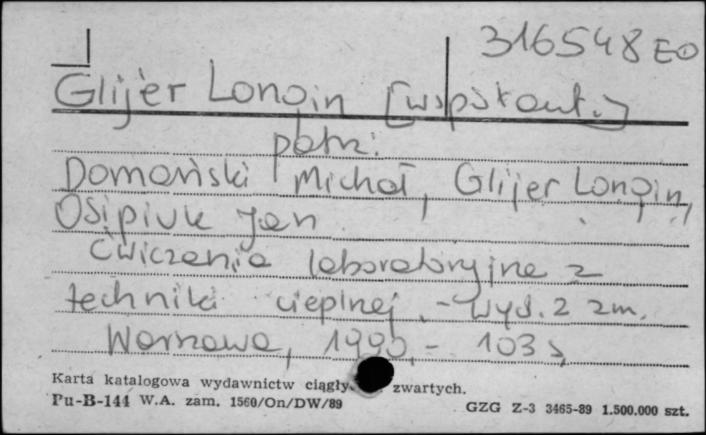 316548 EO
Glijer Longin [współaut.]
patrz:
Domański Michał, Glijer Longin,
Osipiuk Jan
Ćwiczenia laboratoryjne z
techniki cieplnej. - Wyd. 2 zm.
Warszawa, 1990. - 103 s.
Karta katalogowa wydawnictw ciągły zwartych.
Pu-B-144 W.A. zam. 1560/On/DW/89 GZG Z-3 3465-89 1.500.000 szt.